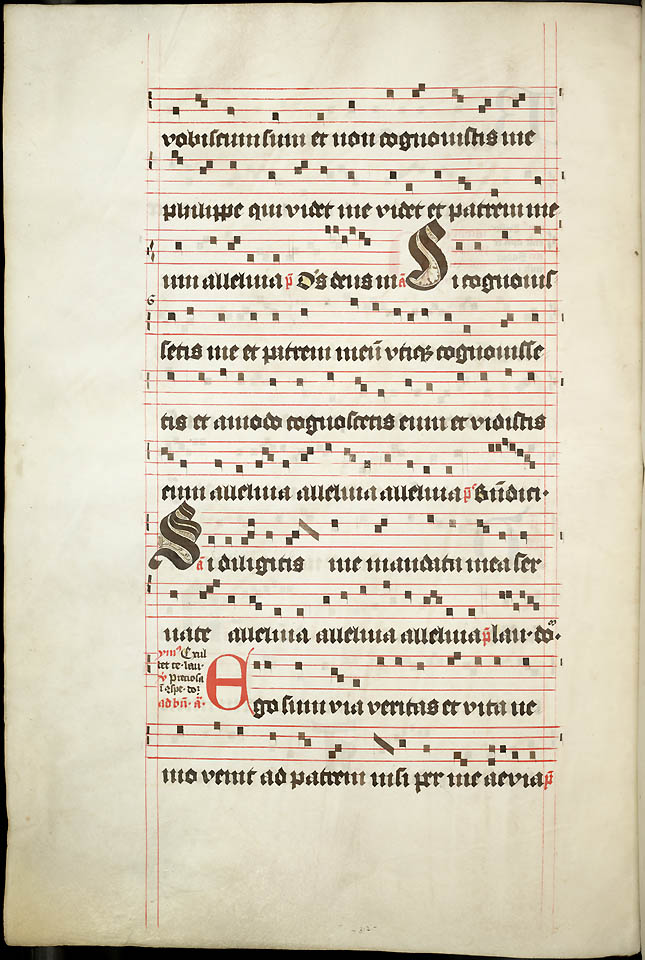 vobiscum sum et non cognovistis me
philippe qui videt me videt et patrem me
um alleluia p̄ D̄s deus m a̅ Si cognovis
setis me et patrem meū vtiqꝫ cognovisse
tis et amodo cognoscetis eum et vidistis
eum alleluia alleluia alleluia p̄ Bn̄dici·
a̅ Si diligitis me mandata mea ser
vate alleluia alleluia alleluia p̄ lau· do·
Exul
tet ce· lau·
v̄ preciosa
ad bn̄· a̅· Ego sum via veritas et vita ne
mo venit ad patrem nisi per me aevia p̄